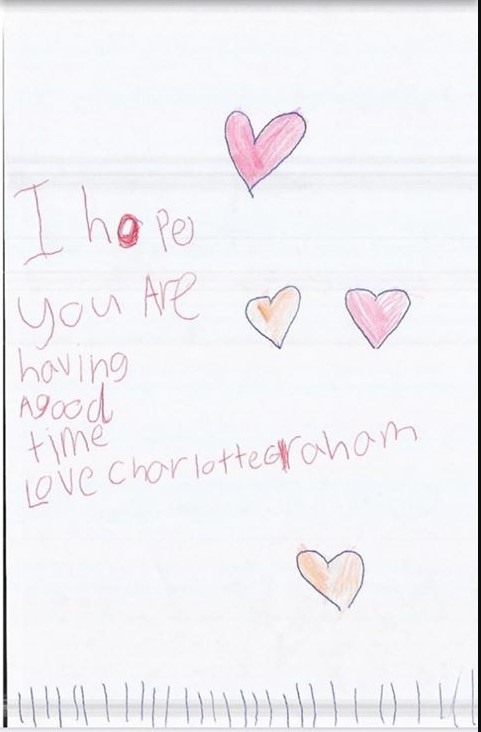 I hope
you Are
having
Agood
time
Love charlottegraham